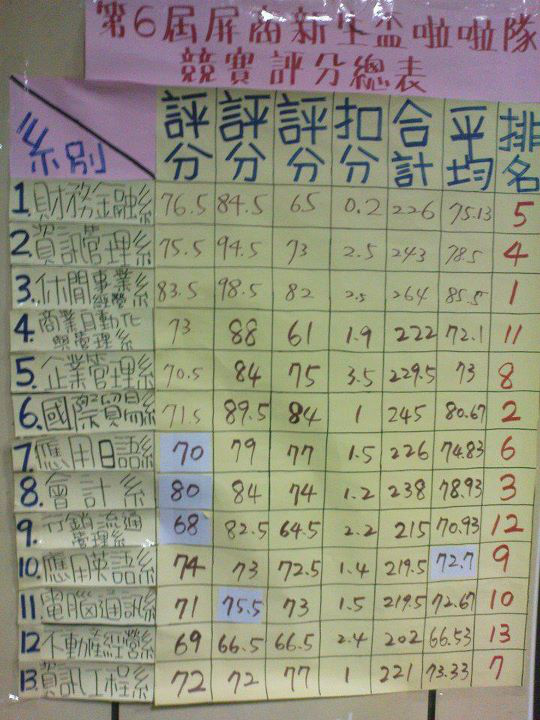 第6屆屏商新生盃啦啦隊
競賽評分總表
系別 評分 評分 評分 扣分 合計 平均 排名
1. 財務金融系 76.5 84.5 65 0.2 226 75.13 5
2. 資訊管理系 75.5 94.5 73 2.5 243 78.5 4
3. 休閒事業經營系 83.5 98.5 82 2.5 264 85.5 1
4. 商業自動化與管理系 73 88 61 1.9 222 72.1 11
5. 企業管理系 70.5 84 75 3.5 229.5 73 8
6. 國際貿易系 71.5 89.5 84 1 245 80.67 2
7. 應用日語系 70 79 77 1.5 226 74.83 6
8. 會計系 80 84 74 1.2 238 78.93 3
9. 行銷流通管理系 68 82.5 64.5 2.2 215 70.93 12
10. 應用英語系 74 73 72.5 1.4 219.5 72.7 9
11. 電腦通訊系 71 75.5 73 1.5 219.5 72.67 10
12 不動產經營系 69 66.5 66.5 2.4 202 66.53 13
13. 資訊工程系 72 72 77 1 221 73.33 7